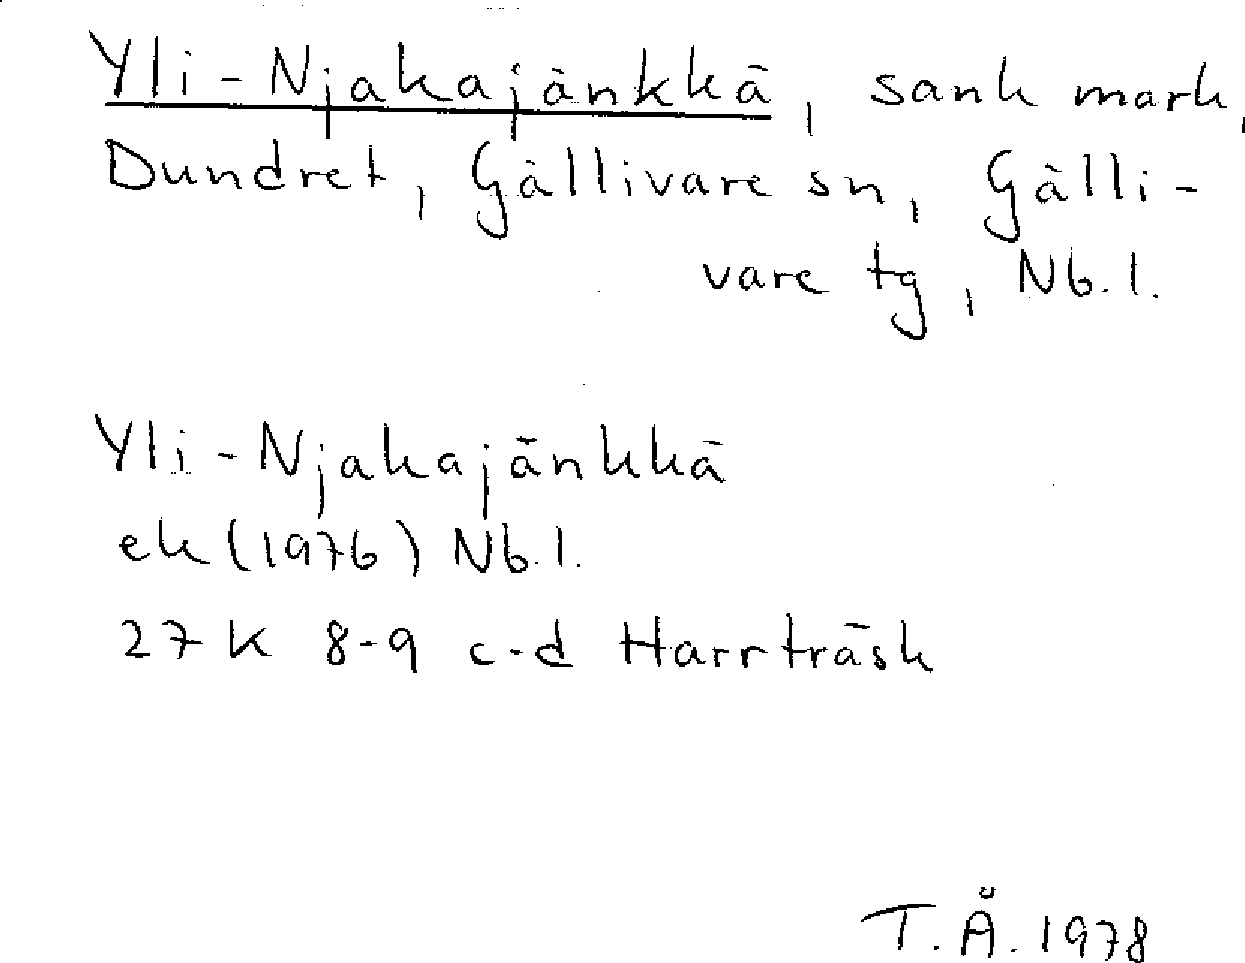 Yli-Njakajänkkä, sank mark,
Dundret, Gällivare sn, Gälli-
vare tg, Nb.l.
Yli-Njakajänkkä
ek (1976) Nb.l.
27 K 8-9 c-d Harrträsk
T.Å. 1978